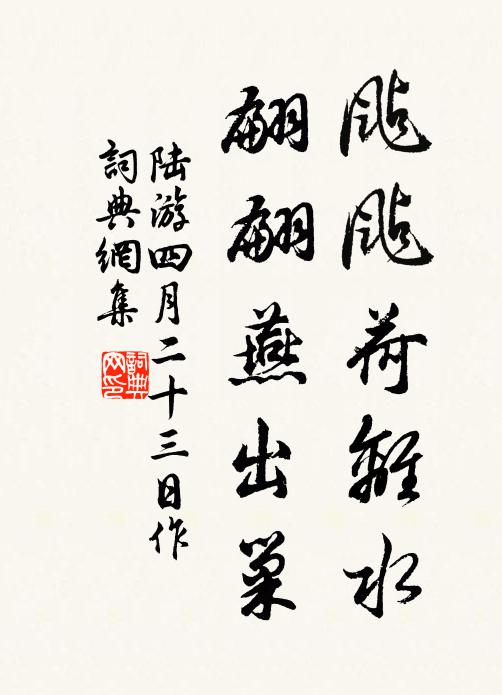 颭颭荷離水
翩翩燕出巢
陆游四月二十三日作
詞典網集
詞典网印